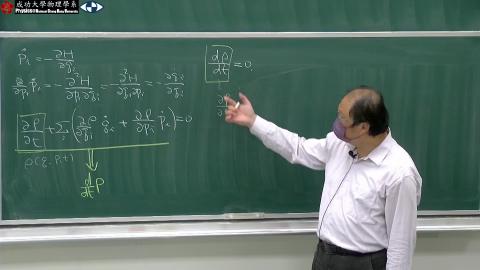 成功大學物理學系
Physics National Cheng Kung University
ṗᵢ = −∂H/∂qᵢ
∂/∂pᵢ ṗᵢ = −∂²H/∂pᵢ∂qᵢ = −∂²H/∂qᵢ∂pᵢ = −∂q̇ᵢ/∂qᵢ
∂ρ/∂t + Σᵢ (∂ρ/∂qᵢ q̇ᵢ + ∂ρ/∂pᵢ ṗᵢ) = 0
ρ(q, p, t)
d/dt ρ
dρ/dt = 0